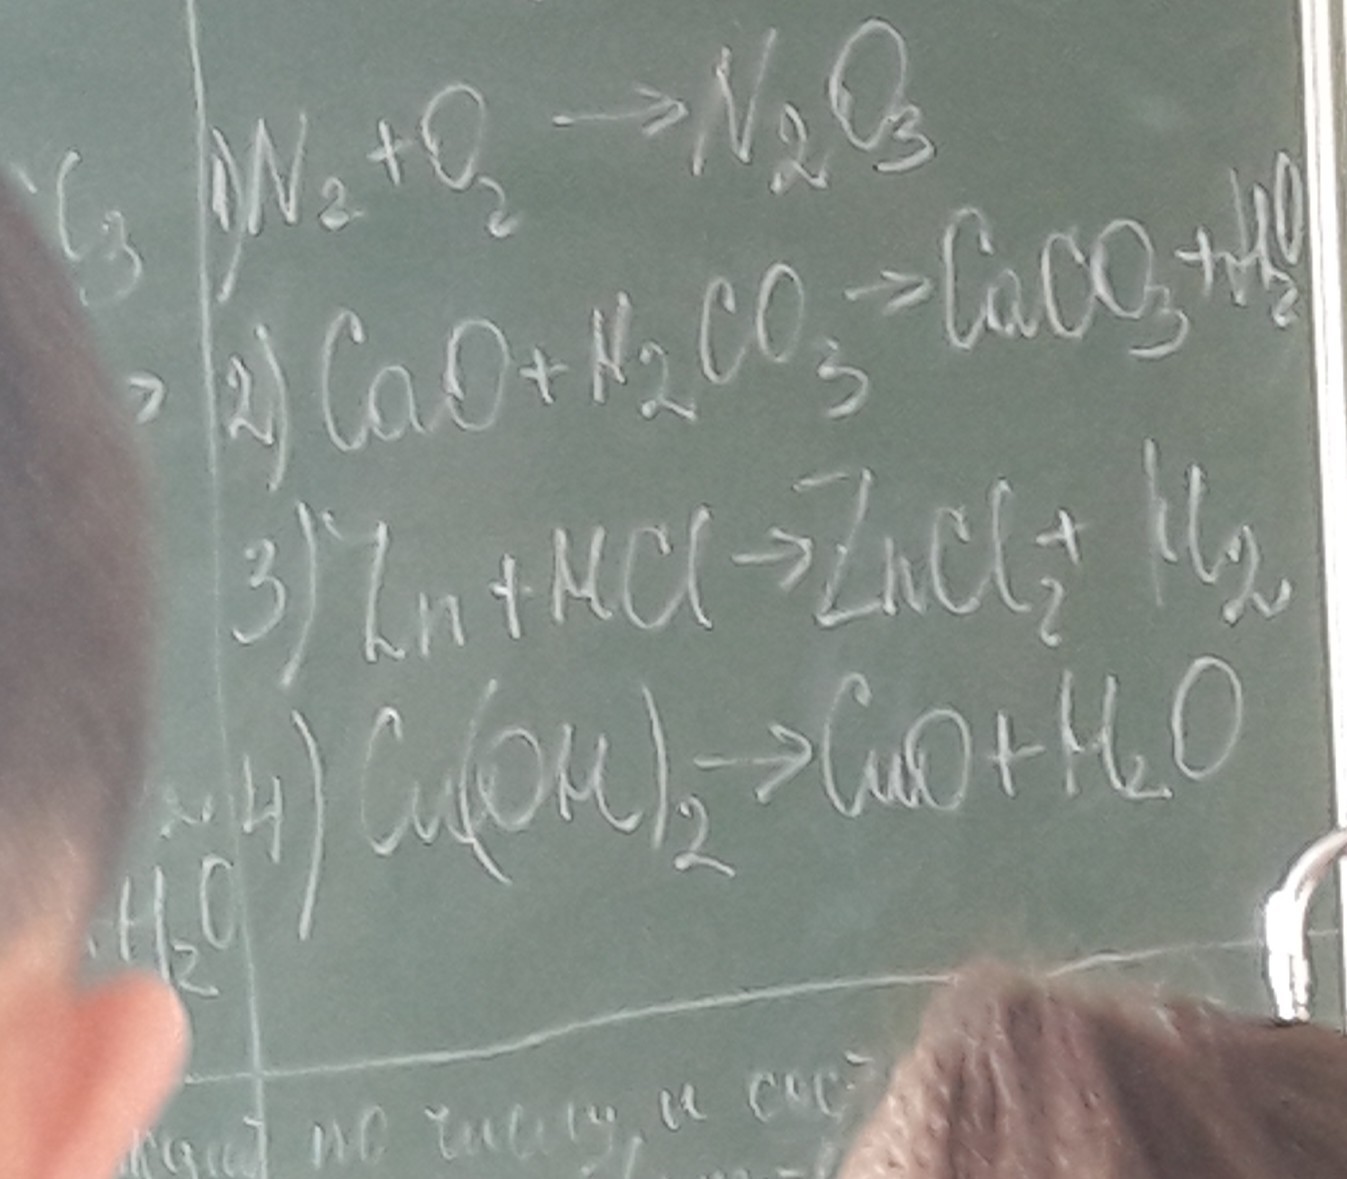 1) N₂ + O₂ → N₂O₃
2) CaO + H₂CO₃ → CaCO₃ + H₂O
3) Zn + HCl → ZnCl₂ + H₂
4) Cu(OH)₂ → CuO + H₂O
H₂O
по числу и